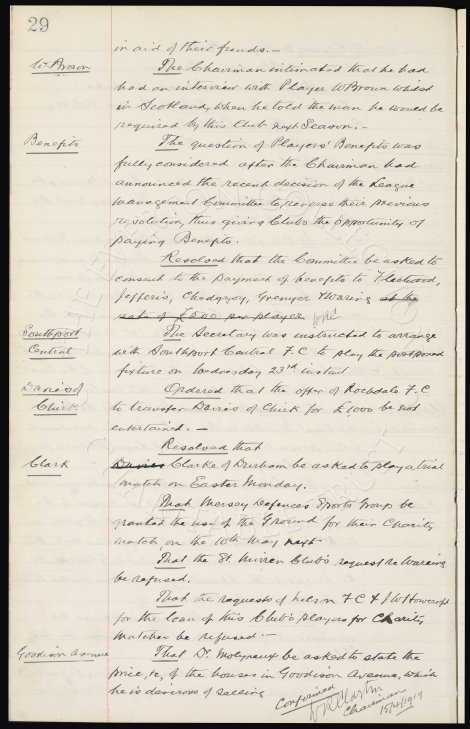 29
in aid of their funds. —
W. Brown
The Chairman intimated that he had
had an interview with Player W Brown whilst
in Scotland, when he told the man he would be
required by this Club next Season. —
Benefits
The question of Players' Benefits was
fully considered after the Chairman had
announced the recent decision of the League
Management Committee to reverse their previous
resolution, thus giving Clubs the opportunity of
paying Benefits.
Resolved that the Committee be asked to
consent to the payment of benefits to Fleetwood,
Jefferis, Chedgzoy, Grenyer & Wareing at the
rate of £500 per player
Southport
Central
The Secretary was instructed to arrange
with Southport Central F.C to play the postponed
fixture on Wednesday 23rd instant
Davies of
Chirk
Ordered that the offer of Rochdale F.C
to transfer Davies of Chirk for £1,000 be not
entertained. —
Resolved that
Clark
Davies Clarke of Durham be asked to play a trial
match on Easter Monday.
That Mersey Defences Sports Group be
granted the use of the Ground for their Charity
match on the 10th May next.
That the St. Mirren Club's request re Wareing
be refused.
That the requests of Nelson F C & J W Howcroft
for the loan of this Club's players for Charity
matches be refused. —
Goodison Avenue
That Dr. Molyneux be asked to state the
price, &c, of the houses in Goodison Avenue, which
he is desirous of selling
Confirmed
Chairman
15/4/1919